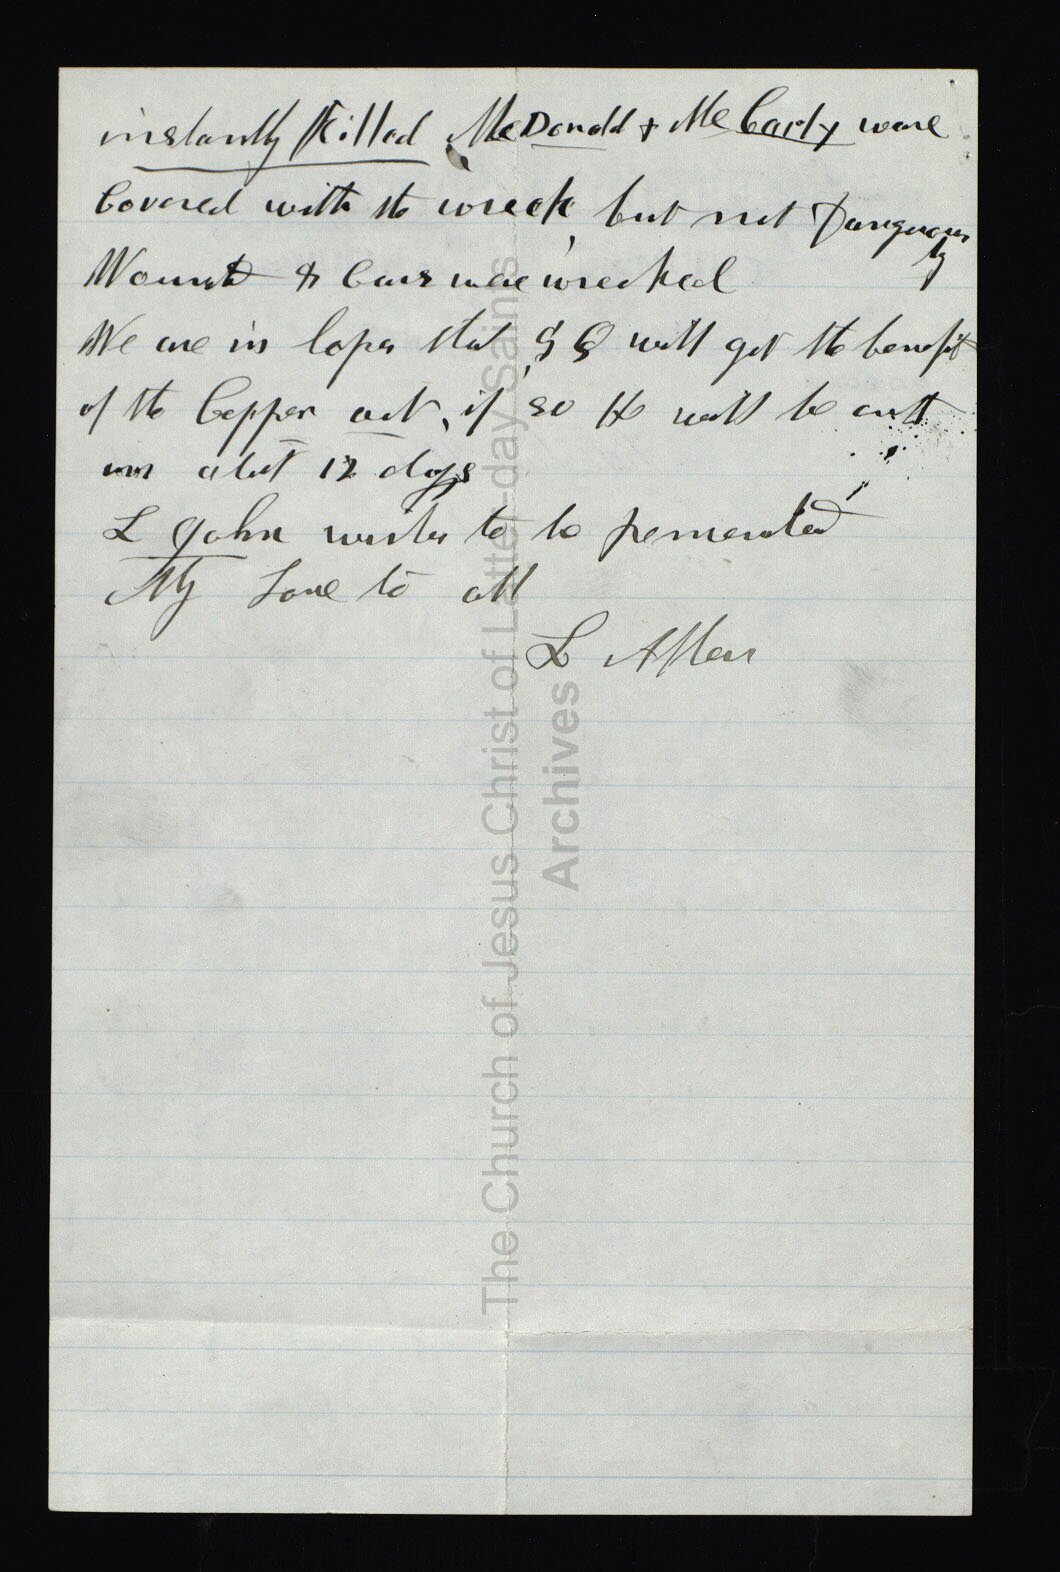 instantly Killed McDonald & McCarty ware
Covered with the wreck, but not Dangerous
ly
Wound & Cars ware wrecked
We are in hopes that will get the benefit
of the Copper act, if so He will be out
in abut 12 days
L John wishes to be remembered
My Love to all
L Allen
The Church of Jesus Christ of Latter-day Saints
Archives